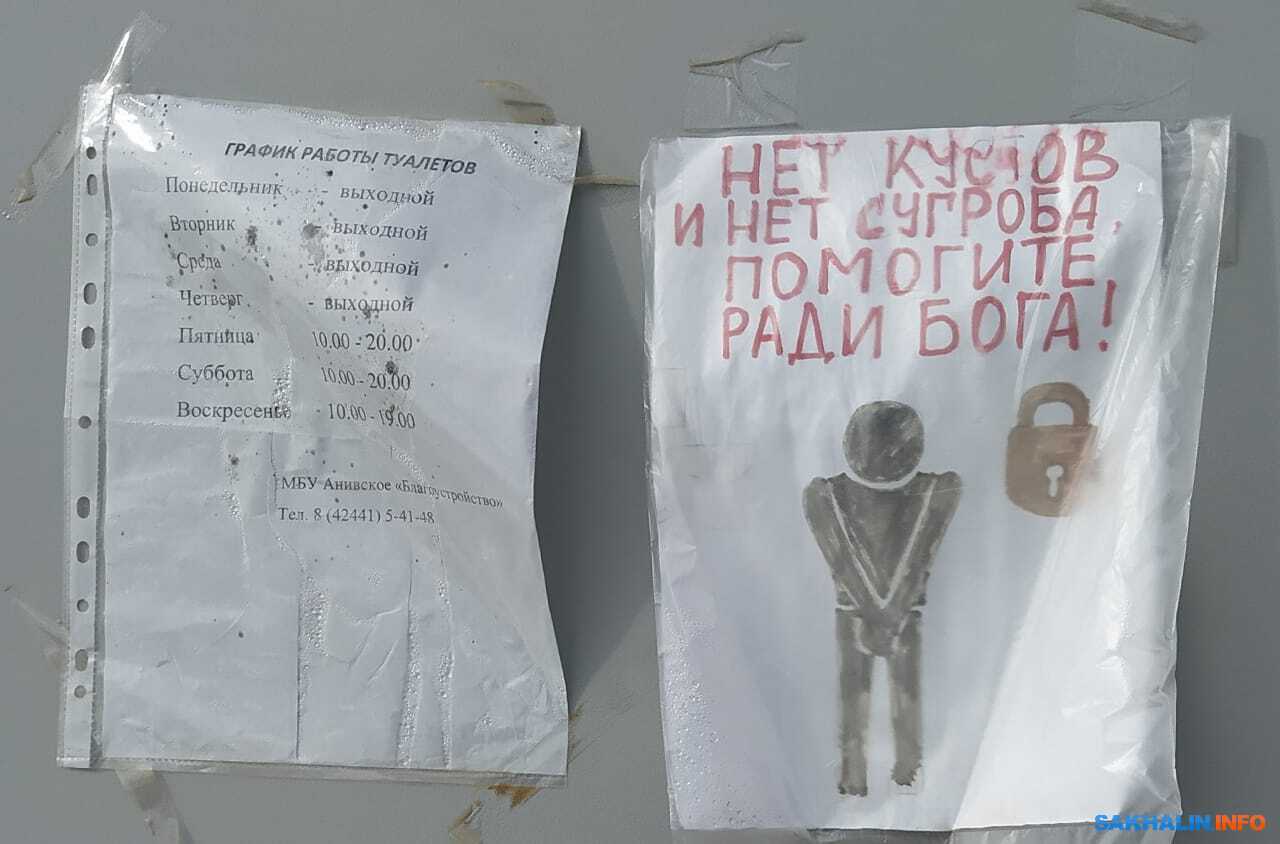 ГРАФИК РАБОТЫ ТУАЛЕТОВ
Понедельник - - выходной
Вторник - выходной
Среда - выходной
Четверг - выходной
Пятница 10.00 - 20.00
Суббота 10.00 - 20.00
Воскресенье - 10.00 - 19.00
МБУ Анивское «Благоустройство»
Тел. 8 (42441) 5-41-48
НЕТ КУСТОВ
И НЕТ СУГРОБА,
ПОМОГИТЕ
РАДИ БОГА!
SAKHALIN.INFO